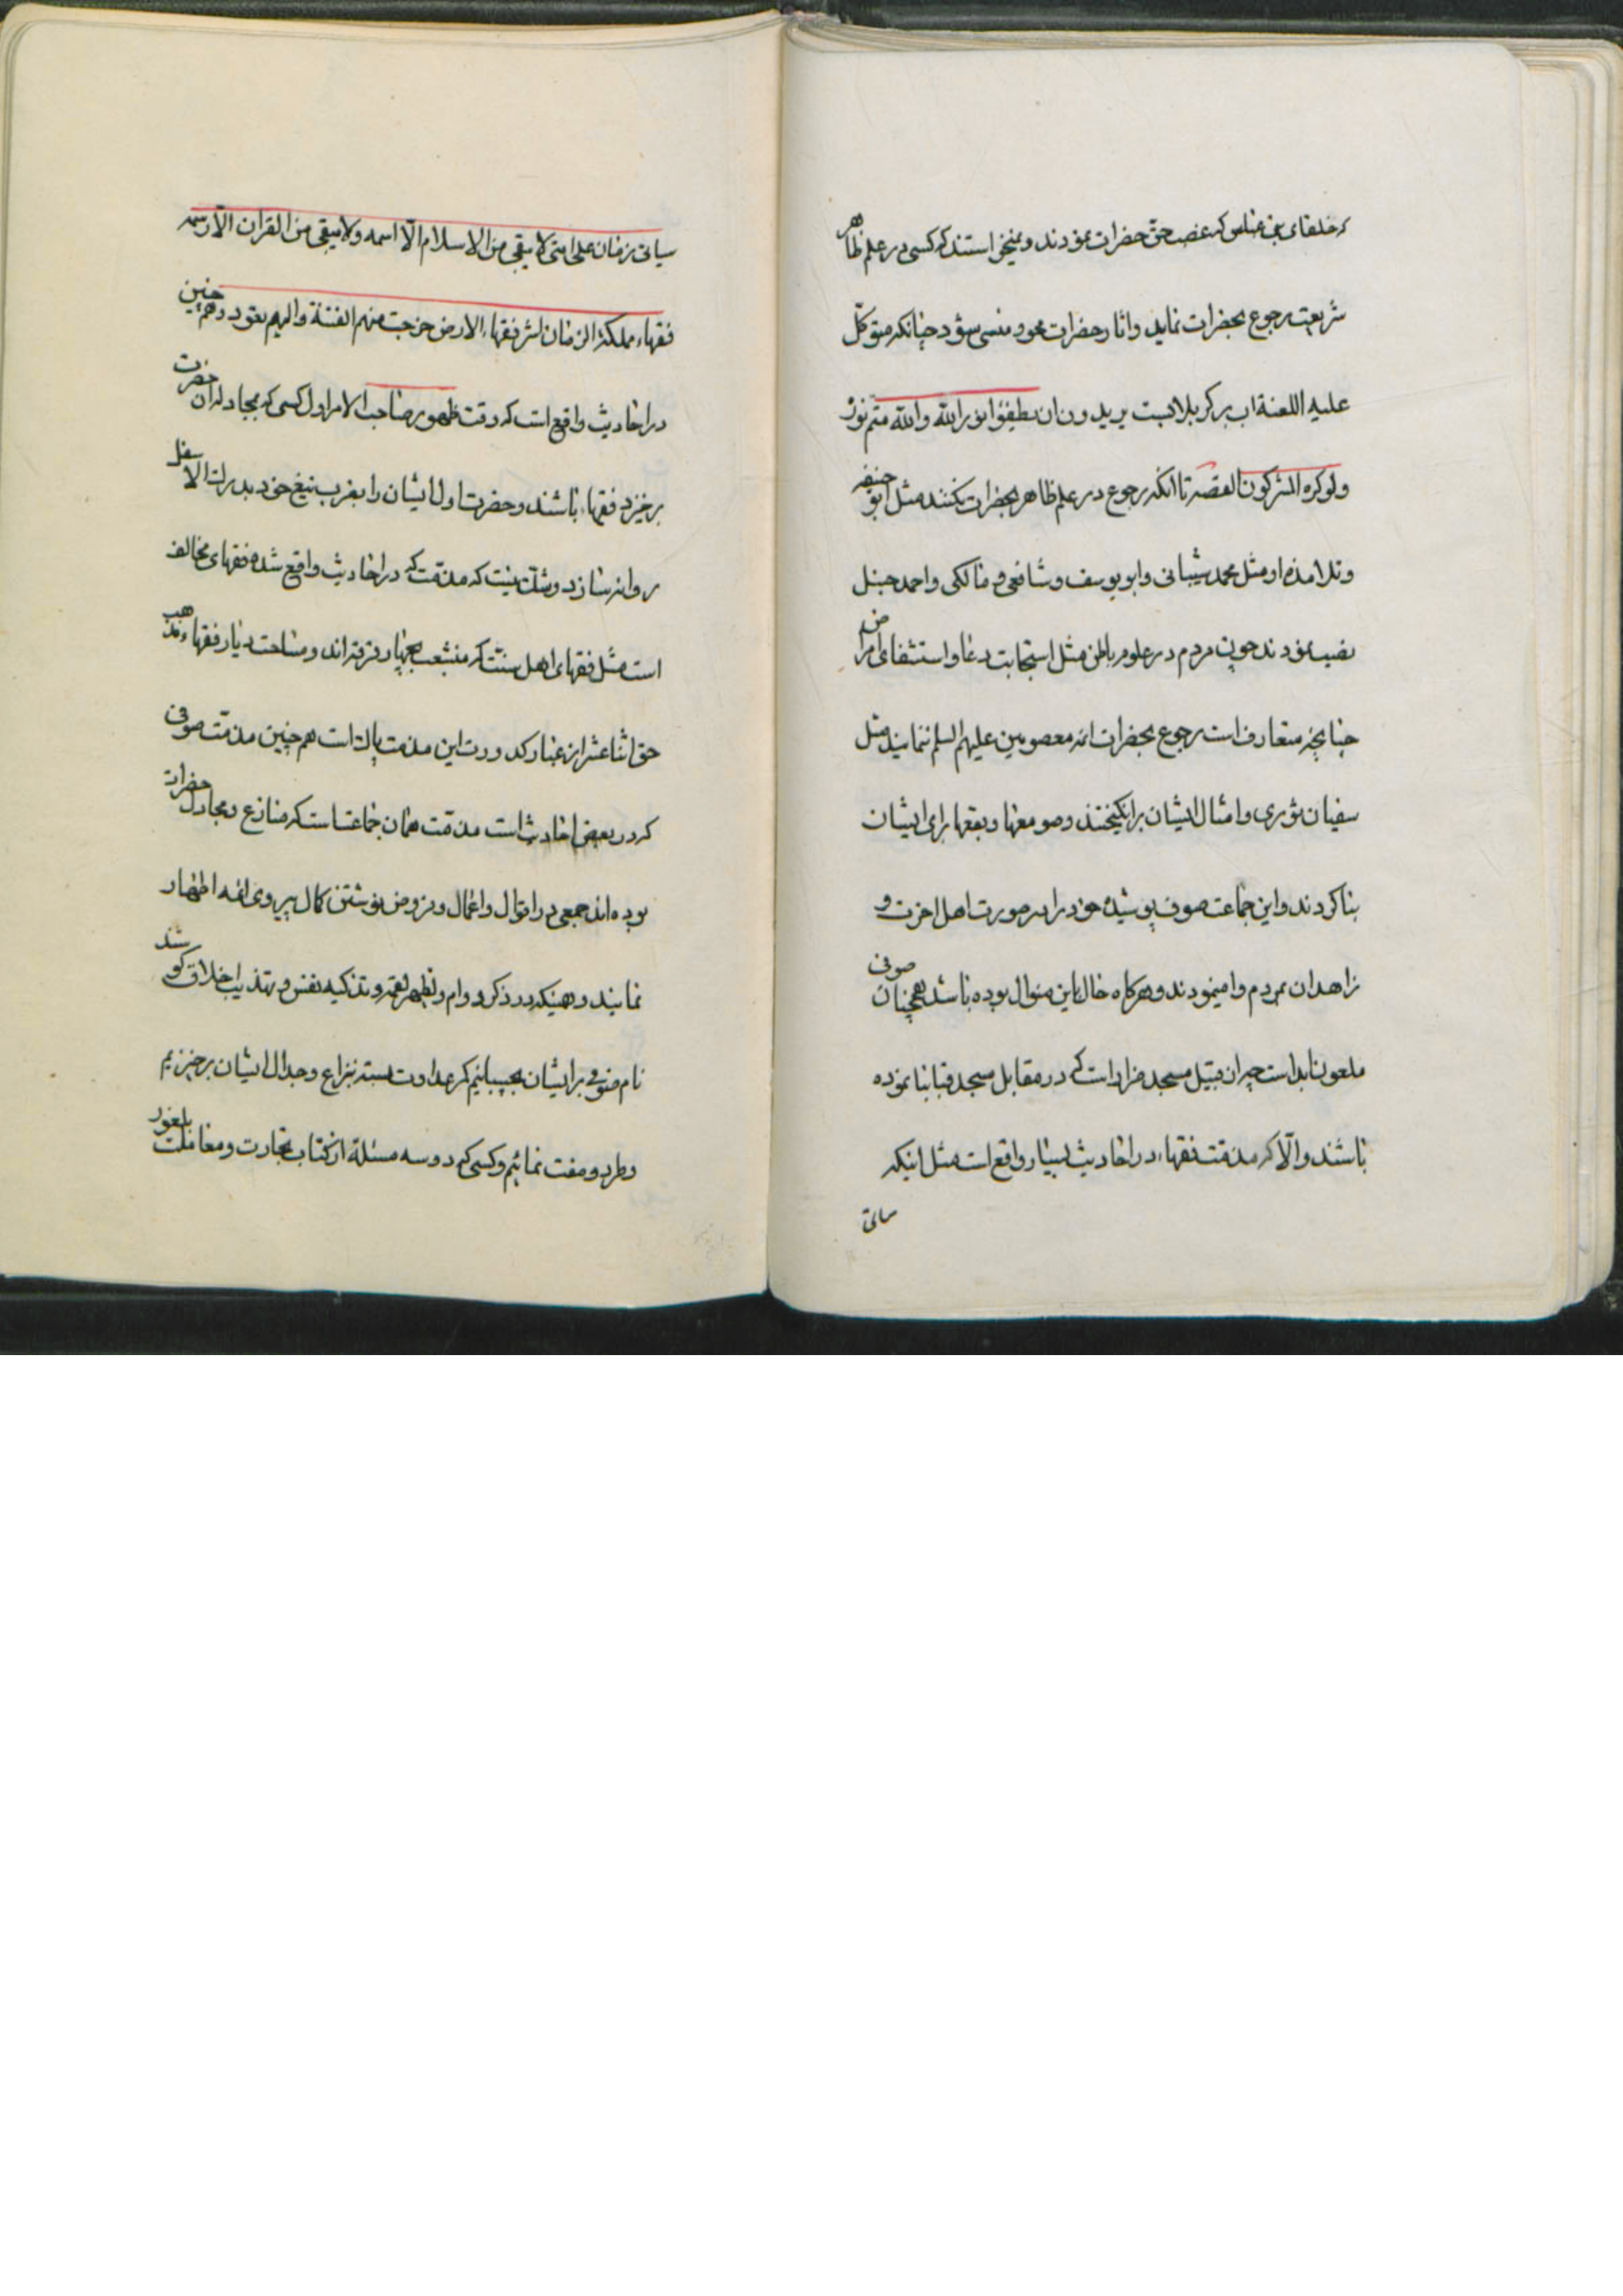 که خلفای بنی عباس که غصب حق حضرات نمودند و نمیخواستند که کسی در علم ظاهر
شریعت رجوع بحضرات نماید و اثار حضرات محو و منسی شود چنانکه متوکل
علیه اللعنة اب بر کربلا بست یریدون ان یطفؤا نور الله والله متم نوره
ولوکره المشرکون القصه تا انکه رجوع در علم ظاهر بحضرات نکنند مثل ابو حنیفه
و تلامذه او مثل محمد شیبانی و ابو یوسف و شافعی و مالکی و احمد حنبل
نصب نمودند چون مردم در علوم باطن مثل استجابت دعا و استشفای امراض
چنانچه متعارف است رجوع بحضرات ائمه معصومین علیهم السلم ننمایند مثل
سفیان ثوری و امثال ایشان برانکیختند و صومعها و بقعها برای ایشان
بنا کردند و این جماعت صوف پوشیده خود را در صورت اهل اخرت و
زاهدان بمردم وامینمودند و هرکاه حال باین منوال بوده باشد همچنان صوفی
ملعون ابد است چه از قبیل مسجد ضرار است که در مقابل مسجد قبا بنا نموده
باشند والا که مذمت فقهاء در احادیث بسیار واقع است مثل اینکه
سیاتی
سیاتی زمان علی امتی لا یبقی من الاسلام الا اسمه ولا یبقی من القران الا رسمه
فقهاء الزمان شر فقهاء الارض خرجت منهم الفتنة والیهم یعود و هم چنین
در احادیث واقع است که وقت ظهور صاحب الامر اول کسی که بمجادله ان حضرت
برخیزد فقهاء باشند و حضرت اول ایشان را بضرب تیغ خود بدرک الاسفل
روانه سازد و شک نیست که مذمت که در احادیث واقع شده فقهای مخالف
است مثل فقهای اهل سنت که منشعب بچهار فرقه اند و ساحت دیار فقهاء مذهب
حق اثنا عشر از غبار کدورت این مذمت پاک است هم چنین مذمت صوفی
که در بعض احادیث است مذمت همان جماعتست که منازع و مجادل حضرات
بوده اند جمعی در اقوال و اعمال و فروض نوشتن کمال پیروی ائمه اظهار
نمایند و همینکه در ذکر دوام و تطهیر لقمه و تزکیه نفس و تهذیب اخلاق کوشند
نام صوفی بر ایشان بچسبانیم کمر عداوت بسته بنزاع و جدال ایشان برخیزیم
و طرد و مفت نمائیم و کسی که دو سه مسئله از کتاب تجارت و معاملت بلغور